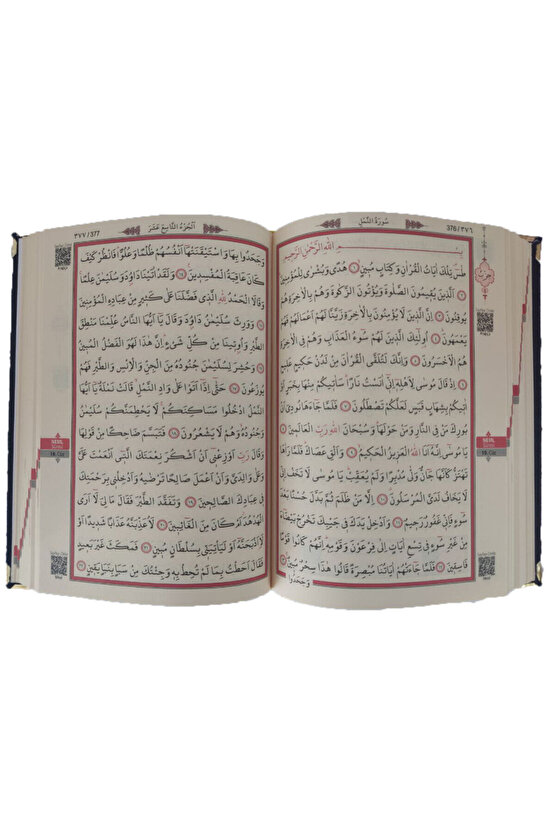 376/٣٧٦
سُورَةُ النَّمْلِ
بِسْمِ اللهِ الرَّحْمٰنِ الرَّحِيمِ
طٰسٓ تِلْكَ اٰيَاتُ الْقُرْاٰنِ وَكِتَابٍ مُبِينٍ ١ هُدًى وَبُشْرٰى لِلْمُؤْمِنِينَ
٢ اَلَّذِينَ يُقِيمُونَ الصَّلٰوةَ وَيُؤْتُونَ الزَّكٰوةَ وَهُمْ بِالْاٰخِرَةِ هُمْ
يُوقِنُونَ ٣ اِنَّ الَّذِينَ لَا يُؤْمِنُونَ بِالْاٰخِرَةِ زَيَّنَّا لَهُمْ اَعْمَالَهُمْ فَهُمْ
يَعْمَهُونَ ٤ اُولٰٓئِكَ الَّذِينَ لَهُمْ سُٓوءُ الْعَذَابِ وَهُمْ فِي الْاٰخِرَةِ
هُمُ الْاَخْسَرُونَ ٥ وَاِنَّكَ لَتُلَقَّى الْقُرْاٰنَ مِنْ لَدُنْ حَكِيمٍ عَلِيمٍ
٦ اِذْ قَالَ مُوسٰى لِاَهْلِهٓ اِنِّٓي اٰنَسْتُ نَارًا سَاٰتِيكُمْ مِنْهَا بِخَبَرٍ اَوْ
اٰتِيكُمْ بِشِهَابٍ قَبَسٍ لَعَلَّكُمْ تَصْطَلُونَ ٧ فَلَمَّا جَٓاءَهَا نُودِيَ اَنْ
بُورِكَ مَنْ فِي النَّارِ وَمَنْ حَوْلَهَا وَسُبْحَانَ اللهِ رَبِّ الْعَالَمِينَ ٨
يَا مُوسٰٓى اِنَّهُٓ اَنَا اللهُ الْعَزِيزُ الْحَكِيمُ ٩ وَاَلْقِ عَصَاكَ فَلَمَّا رَاٰهَا
تَهْتَزُّ كَاَنَّهَا جَٓانٌّ وَلّٰى مُدْبِرًا وَلَمْ يُعَقِّبْ يَا مُوسٰى لَا تَخَفْ اِنِّي
لَا يَخَافُ لَدَيَّ الْمُرْسَلُونَ ١٠ اِلَّا مَنْ ظَلَمَ ثُمَّ بَدَّلَ حُسْنًا بَعْدَ
سُٓوءٍ فَاِنِّي غَفُورٌ رَحِيمٌ ١١ وَاَدْخِلْ يَدَكَ فِي جَيْبِكَ تَخْرُجْ بَيْضَٓاءَ
مِنْ غَيْرِ سُٓوءٍ فِي تِسْعِ اٰيَاتٍ اِلٰى فِرْعَوْنَ وَقَوْمِهِ اِنَّهُمْ كَانُوا قَوْمًا
فَاسِقِينَ ١٢ فَلَمَّا جَٓاءَتْهُمْ اٰيَاتُنَا مُبْصِرَةً قَالُوا هٰذَا سِحْرٌ مُبِينٌ ١٣
وَجَحَدُوا
19. Cüz
اَلْجُزْءُ التَّاسِعَ عَشَرَ
٣٧٧/377
وَجَحَدُوا بِهَا وَاسْتَيْقَنَتْهَٓا اَنْفُسُهُمْ ظُلْمًا وَعُلُوًّا فَانْظُرْ كَيْفَ
كَانَ عَاقِبَةُ الْمُفْسِدِينَ ١٤ وَلَقَدْ اٰتَيْنَا دَاوُدَ وَسُلَيْمٰنَ عِلْمًا
وَقَالَا الْحَمْدُ لِلهِ الَّذِي فَضَّلَنَا عَلٰى كَثِيرٍ مِنْ عِبَادِهِ الْمُؤْمِنِينَ
١٥ وَوَرِثَ سُلَيْمٰنُ دَاوُدَ وَقَالَ يَٓا اَيُّهَا النَّاسُ عُلِّمْنَا مَنْطِقَ
الطَّيْرِ وَاُوتِينَا مِنْ كُلِّ شَيْءٍ اِنَّ هٰذَا لَهُوَ الْفَضْلُ الْمُبِينُ
١٦ وَحُشِرَ لِسُلَيْمٰنَ جُنُودُهُ مِنَ الْجِنِّ وَالْاِنْسِ وَالطَّيْرِ فَهُمْ
يُوزَعُونَ ١٧ حَتّٰٓى اِذَٓا اَتَوْا عَلٰى وَادِ النَّمْلِ قَالَتْ نَمْلَةٌ يَٓا اَيُّهَا
النَّمْلُ ادْخُلُوا مَسَاكِنَكُمْ لَا يَحْطِمَنَّكُمْ سُلَيْمٰنُ
وَجُنُودُهُ وَهُمْ لَا يَشْعُرُونَ ١٨ فَتَبَسَّمَ ضَاحِكًا مِنْ قَوْلِهَا
وَقَالَ رَبِّ اَوْزِعْنِٓي اَنْ اَشْكُرَ نِعْمَتَكَ الَّتِٓي اَنْعَمْتَ عَلَيَّ
وَعَلٰى وَالِدَيَّ وَاَنْ اَعْمَلَ صَالِحًا تَرْضٰيهُ وَاَدْخِلْنِي بِرَحْمَتِكَ
فِي عِبَادِكَ الصَّالِحِينَ ١٩ وَتَفَقَّدَ الطَّيْرَ فَقَالَ مَا لِيَ لَٓا اَرَى
الْهُدْهُدَ اَمْ كَانَ مِنَ الْغَٓائِبِينَ ٢٠ لَاُعَذِّبَنَّهُ عَذَابًا شَدِيدًا اَوْ
لَا۬اَذْبَحَنَّهُٓ اَوْ لَيَاْتِيَنِّي بِسُلْطَانٍ مُبِينٍ ٢١ فَمَكَثَ غَيْرَ بَعِيدٍ
فَقَالَ اَحَطْتُ بِمَا لَمْ تُحِطْ بِهِ وَجِئْتُكَ مِنْ سَبَاٍ بِنَبَاٍ يَقِينٍ ٢٢
19. Cüz